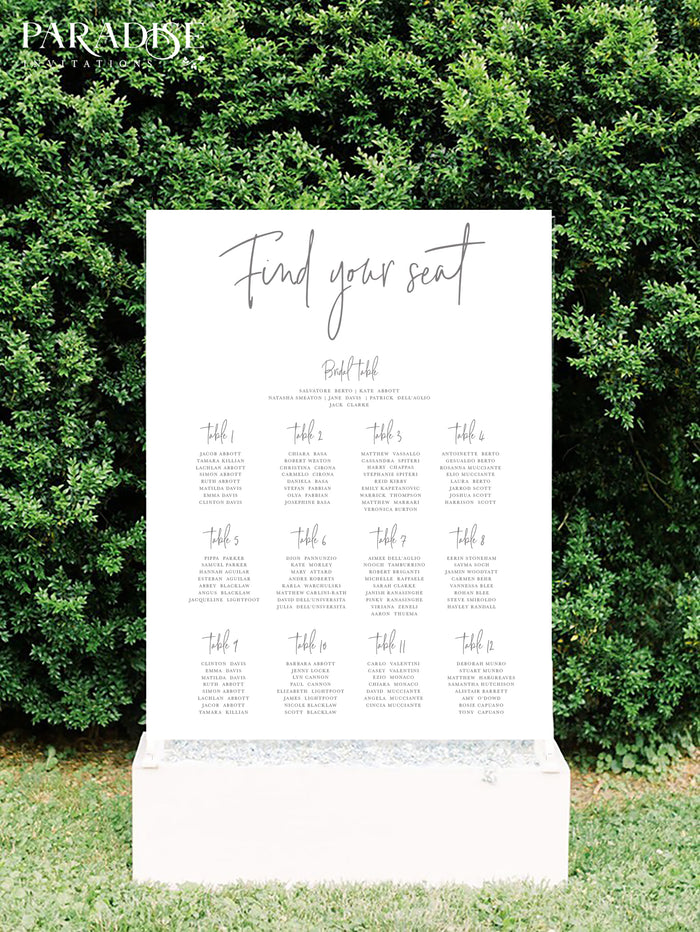 PARADISE
INVITATIONS
Find your seat
Bridal table
SALVATORE BERTO | KATE ABBOTT
NATASHA SMEATON | JANE DAVIS | PATRICK DELL'AGLIO
JACK CLARKE
table 1
JACOB ABBOTT
TAMARA KILLIAN
LACHLAN ABBOTT
SIMON ABBOTT
RUTH ABBOTT
MATILDA DAVIS
EMMA DAVIS
CLINTON DAVIS
table 2
CHIARA BASA
ROBERT WESTON
CHRISTINA CIRONA
CARMELO CIRONA
DANIELA BASA
STEFAN FABBIAN
OLYA FABBIAN
JOSEPHINE BASA
table 3
MATTHEW VASSALLO
CASSANDRA SPITERI
MARRY CHAPPAL
STEPHANIE SPITERI
REID KIRBY
EMILY KAPETANOVIC
WARRICK THOMPSON
MATTHEW MARRARI
VERONICA BURTON
table 4
ANTOINETTE BERTO
GESUALDO BERTO
ROSANNA MUCCIANTE
ELIO MUCCIANTE
LAURA BERTO
JARROD SCOTT
JOSHUA SCOTT
HARRISON SCOTT
table 5
PIPPA PARKER
SAMUEL PARKER
HANNAH AGUILAR
ESTEBAN AGUILAR
ABBEY BLACKLAW
ANGUS BLACKLAW
JACQUELINE LIGHTFOOT
table 6
DION PANNUNZIO
KATE MORLEY
MARY ATTARD
ANDRE ROBERTS
KARLA WARCHULSKI
MATTHEW CARLINI-RATH
DAVID DELL'UNIVERSITA
JULIA DELL'UNIVERSITA
table 7
AIMEE DELL'AGLIO
NOOCH TAMBURRINO
ROBERT BRIGANTI
MICHELLE RAFFAELE
SARAH CLARKE
JANISH RANASINGHE
PINKY RANASINGHE
VIRIANA ZENELI
AARON THUEMA
table 8
EERIN STONEHAM
SAYMA SOCH
JASMIN WOODYATT
CARMEN BEHR
VANNESSA BLEE
ROHAN BLEE
STEVE SIMBOLDO
HAYLEY RANDALL
table 9
CLINTON DAVIS
EMMA DAVIS
MATILDA DAVIS
RUTH ABBOTT
SIMON ABBOTT
LACHLAN ABBOTT
JACOB ABBOTT
TAMARA KILLIAN
table 10
BARBARA ABBOTT
JENNY LOCKE
LYN CANNON
PAUL CANNON
ELIZABETH LIGHTFOOT
JAMES LIGHTFOOT
NICOLE BLACKLAW
SCOTT BLACKLAW
table 11
CARLO VALENTINI
CASEY VALENTINI
EZIO MONACO
CHIARA MONACO
DAVID MUCCIANTE
ANGELA MUCCIANTE
CINCIA MUCCIANTE
table 12
DEBORAH MUNRO
STUART MUNRO
MATTHEW HARGREAVES
SAMANTHA HUTCHISON
ALISTAIR BARRETT
AMY O'DOWD
ROSIE CAPUANO
TONY CAPUANO